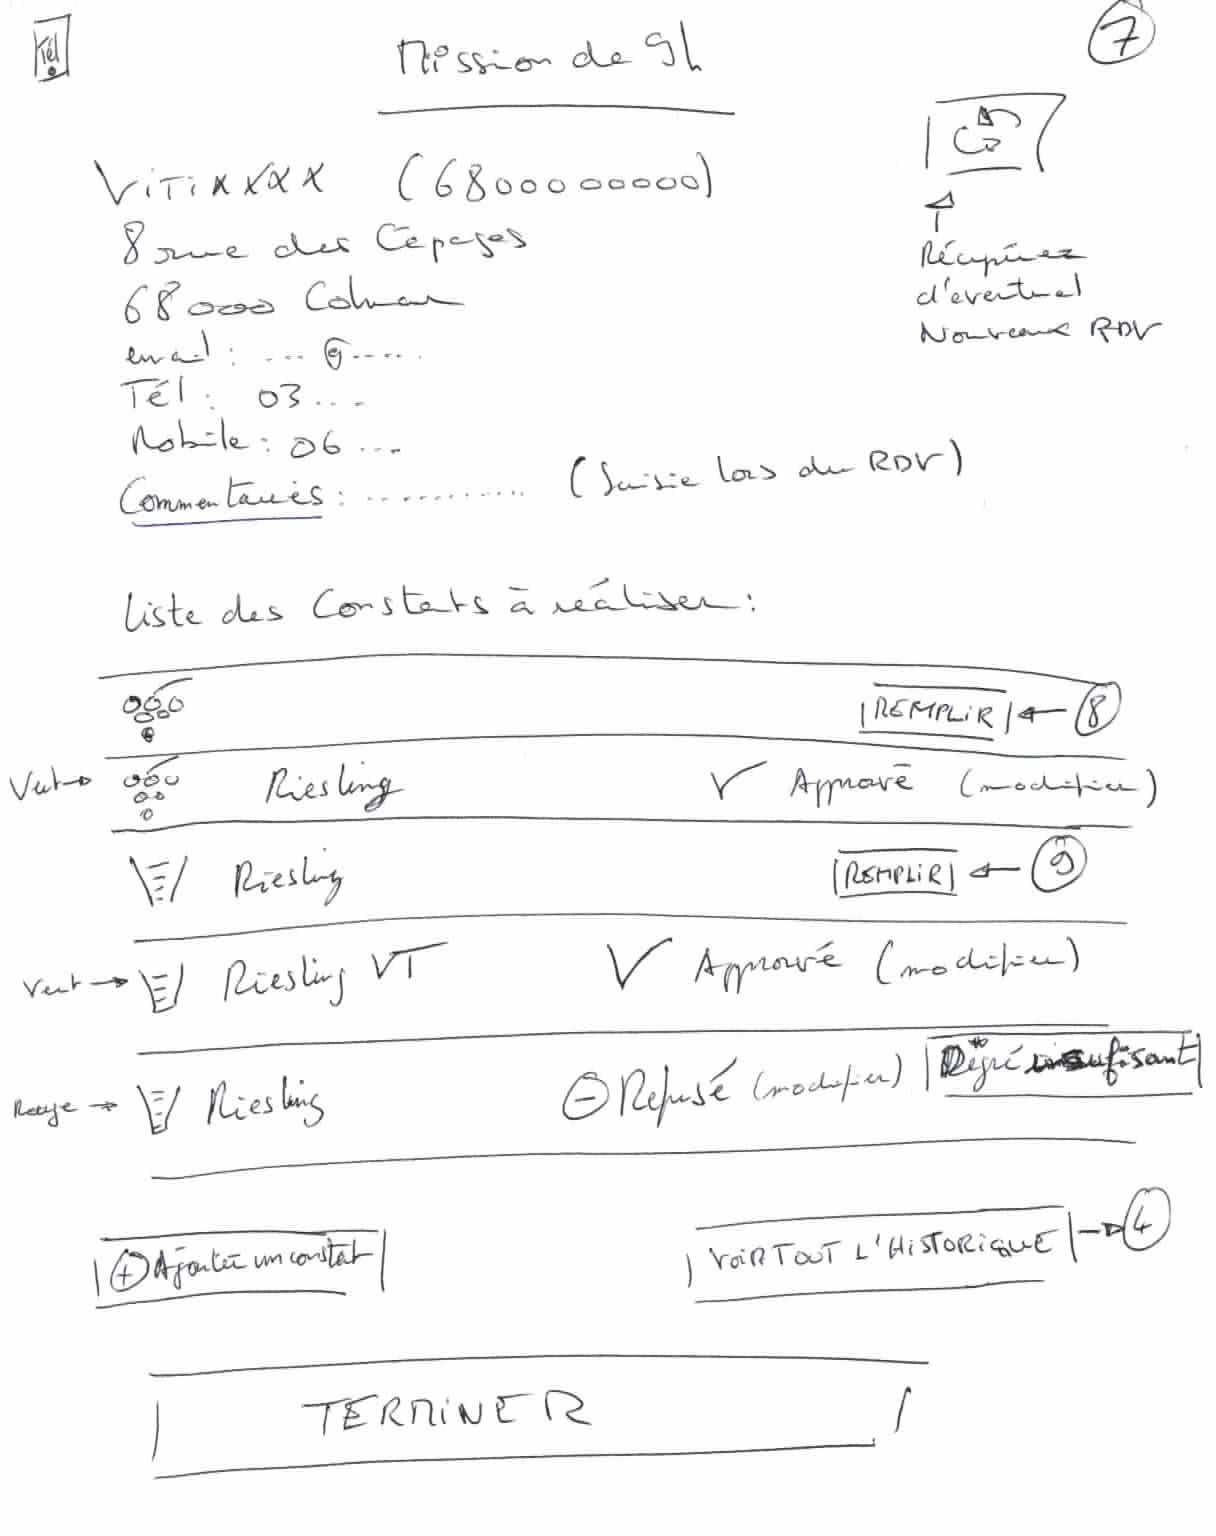 Tél
7
Mission de 9h
VITIXXXX (6800000000)
8 rue des Cépages
68000 Colmar
email : ... @ .....
Tél : 03 ....
Mobile : 06 ...
Commentaires : ........... (Saisie lors du RDV)
Récupérez
d'eventuel
Nouveaux RDV
Liste des Constats à réaliser :
REMPLIR ← 8
Vert → Riesling ✓ Approuvé (modifier)
Riesling REMPLIR ← 9
Vert → Riesling VT ✓ Approuvé (modifier)
Rouge → Riesling ⊖ Refusé (modifier) Degré insufisant
⊕ Ajouter un constat
VOIR TOUT L'HISTORIQUE → 4
TERMINER